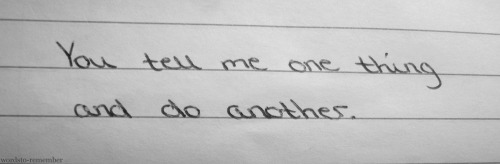 You tell me one thing
and do another.
wordsto-remember